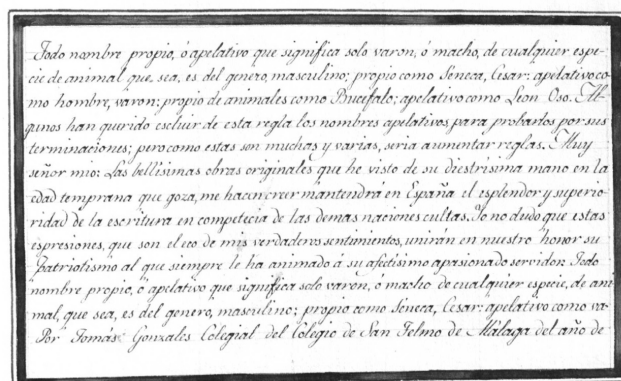 Todo nombre propio, ó apelativo que significa solo varon, ó macho, de cualquier espe-
cie de animal que sea, es del genero, masculino; propio como Séneca, Cesar: apelativo co-
mo hombre, varon: propio de animales como Bucéfalo; apelativo como Leon Oso. Al-
gunos han querido escluir de esta regla los nombres apelativos, para probarlos por sus
terminaciones; pero como estas son muchas y varias, seria aumentar reglas. Muy
señor mio: Las bellísimas obras originales que he visto de su diestrísima mano en la
edad temprana que goza, me hacen creer mantendrá en España el esplendor y superio-
ridad de la escritura en competecia de las demas naciones cultas. Yo no dudo que estas
espresiones, que son el eco de mis verdaderos sentimientos, unirán en nuestro honor su
patriotismo al que siempre le ha animado á su afectísimo apasionado servidor: Todo
nombre propio, ó apelativo que significa solo varon, o macho de cualquier especie, de ani-
mal, que sea, es del genero, masculino; propio como Séneca, Cesar: apelativo como va-
Por Tomás Gonzales Colegial del Colegio de San Telmo de Málaga del año de